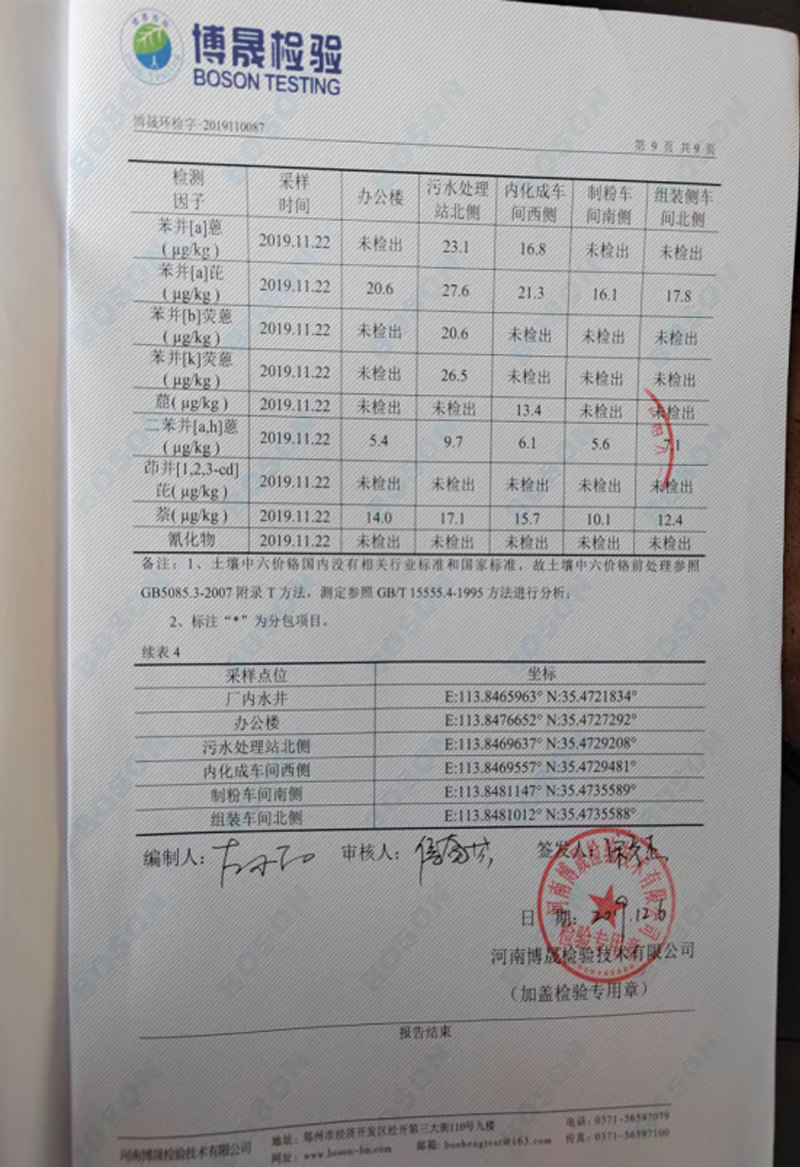 博晟检验
BOSON TESTING
博晟环检字-2019110087
第 9 页 共 9 页
检测因子 采样时间 办公楼 污水处理站北侧 内化成车间西侧 制粉车间南侧 组装侧车间北侧
苯并[a]蒽(μg/kg) 2019.11.22 未检出 23.1 16.8 未检出 未检出
苯并[a]芘(μg/kg) 2019.11.22 20.6 27.6 21.3 16.1 17.8
苯并[b]荧蒽(μg/kg) 2019.11.22 未检出 20.6 未检出 未检出 未检出
苯并[k]荧蒽(μg/kg) 2019.11.22 未检出 26.5 未检出 未检出 未检出
䓛(μg/kg) 2019.11.22 未检出 未检出 13.4 未检出 未检出
二苯并[a,h]蒽(μg/kg) 2019.11.22 5.4 9.7 6.1 5.6 7.1
茚并[1,2,3-cd]芘(μg/kg) 2019.11.22 未检出 未检出 未检出 未检出 未检出
萘(μg/kg) 2019.11.22 14.0 17.1 15.7 10.1 12.4
氰化物 2019.11.22 未检出 未检出 未检出 未检出 未检出
备注：1、土壤中六价铬国内没有相关行业标准和国家标准，故土壤中六价铬前处理参照
GB5085.3-2007 附录 T 方法，测定参照 GB/T 15555.4-1995 方法进行分析；
2、标注“*”为分包项目。
续表 4
采样点位 坐标
厂内水井 E:113.8465963° N:35.4721834°
办公楼 E:113.8476652° N:35.4727292°
污水处理站北侧 E:113.8469637° N:35.4729208°
内化成车间西侧 E:113.8469557° N:35.4729481°
制粉车间南侧 E:113.8481147° N:35.4735589°
组装车间北侧 E:113.8481012° N:35.4735588°
编制人： 审核人： 签发人：
日 期：2019.12.6
河南博晟检验技术有限公司
检验专用章
河南博晟检验技术有限公司
（加盖检验专用章）
报告结束
河南博晟检验技术有限公司
地址：郑州市经济开发区经开第三大街110号九楼 电话：0371-56597079
网址：www.boson-hn.com 邮箱：boshengtest@163.com 传真：0371-56597100